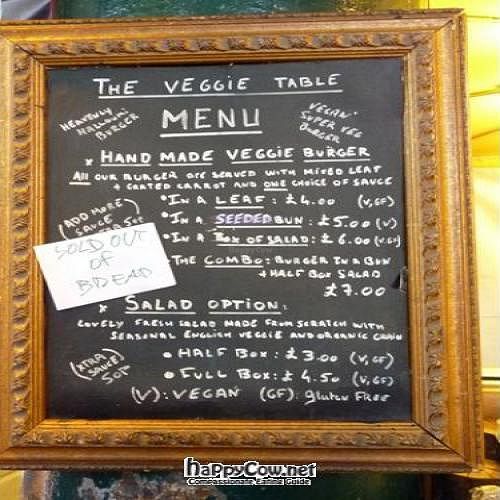 THE VEGGIE TABLE
MENU
HEAVENLY
HALLOUMI
BURGER
VEGAN
SUPER VEG
BURGER
x HAND MADE VEGGIE BURGER
ALL OUR BURGER ARE SERVED WITH MIXED LEAF
+ GRATED CARROT AND ONE CHOICE OF SAUCE
(ADD MORE
SAUCE
50P
• IN A LEAF : £4.00 (V,GF)
• IN A SEEDED BUN : £5.00 (V)
• IN A BOX OF SALAD : £6.00 (V,GF)
SOLD OUT
OF
BREAD
THE COMBO : BURGER IN A BUN
+ HALF BOX SALAD
£7.00
x SALAD OPTION :
LOVELY FRESH SALAD MADE FROM SCRATCH WITH
SEASONAL ENGLISH VEGGIE AND ORGANIC GRAIN
(XTRA
SAUCE)
50P
• HALF BOX : £3.00 (V,GF)
• FULL BOX : £4.50 (V,GF)
(V) : VEGAN (GF) : Gluten FREE
happyCow.net
Compassionate Eating Guide